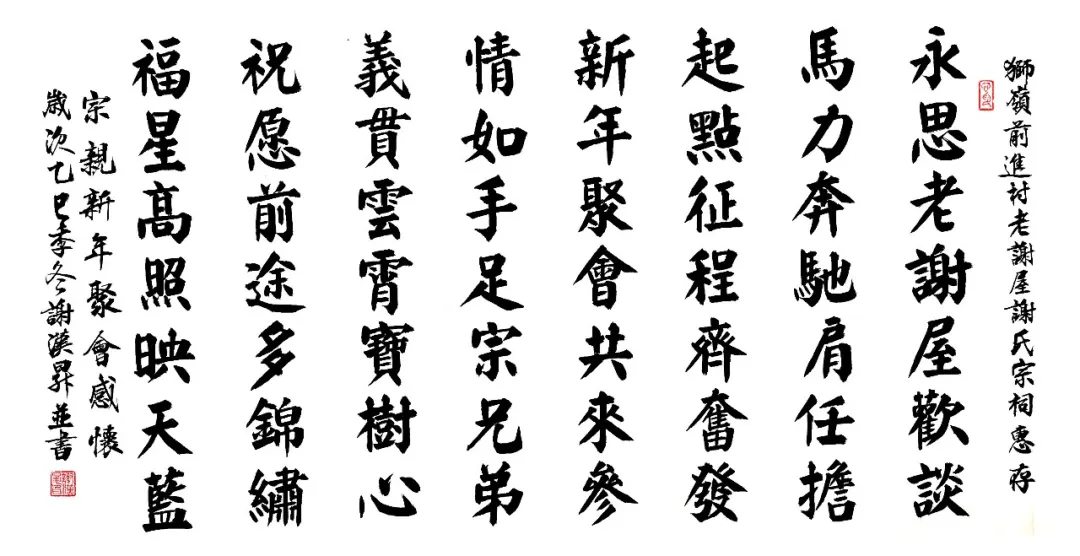 獅嶺前進村老謝屋謝氏宗祠惠存
永思老謝屋歡談
馬力奔馳肩任擔
起點征程齊奮發
新年聚會共來參
情如手足宗兄弟
義貫雲霄寶樹心
祝愿前途多錦繡
福星高照映天藍
宗親新年聚會感懷
歲次乙巳季冬謝漢昇並書